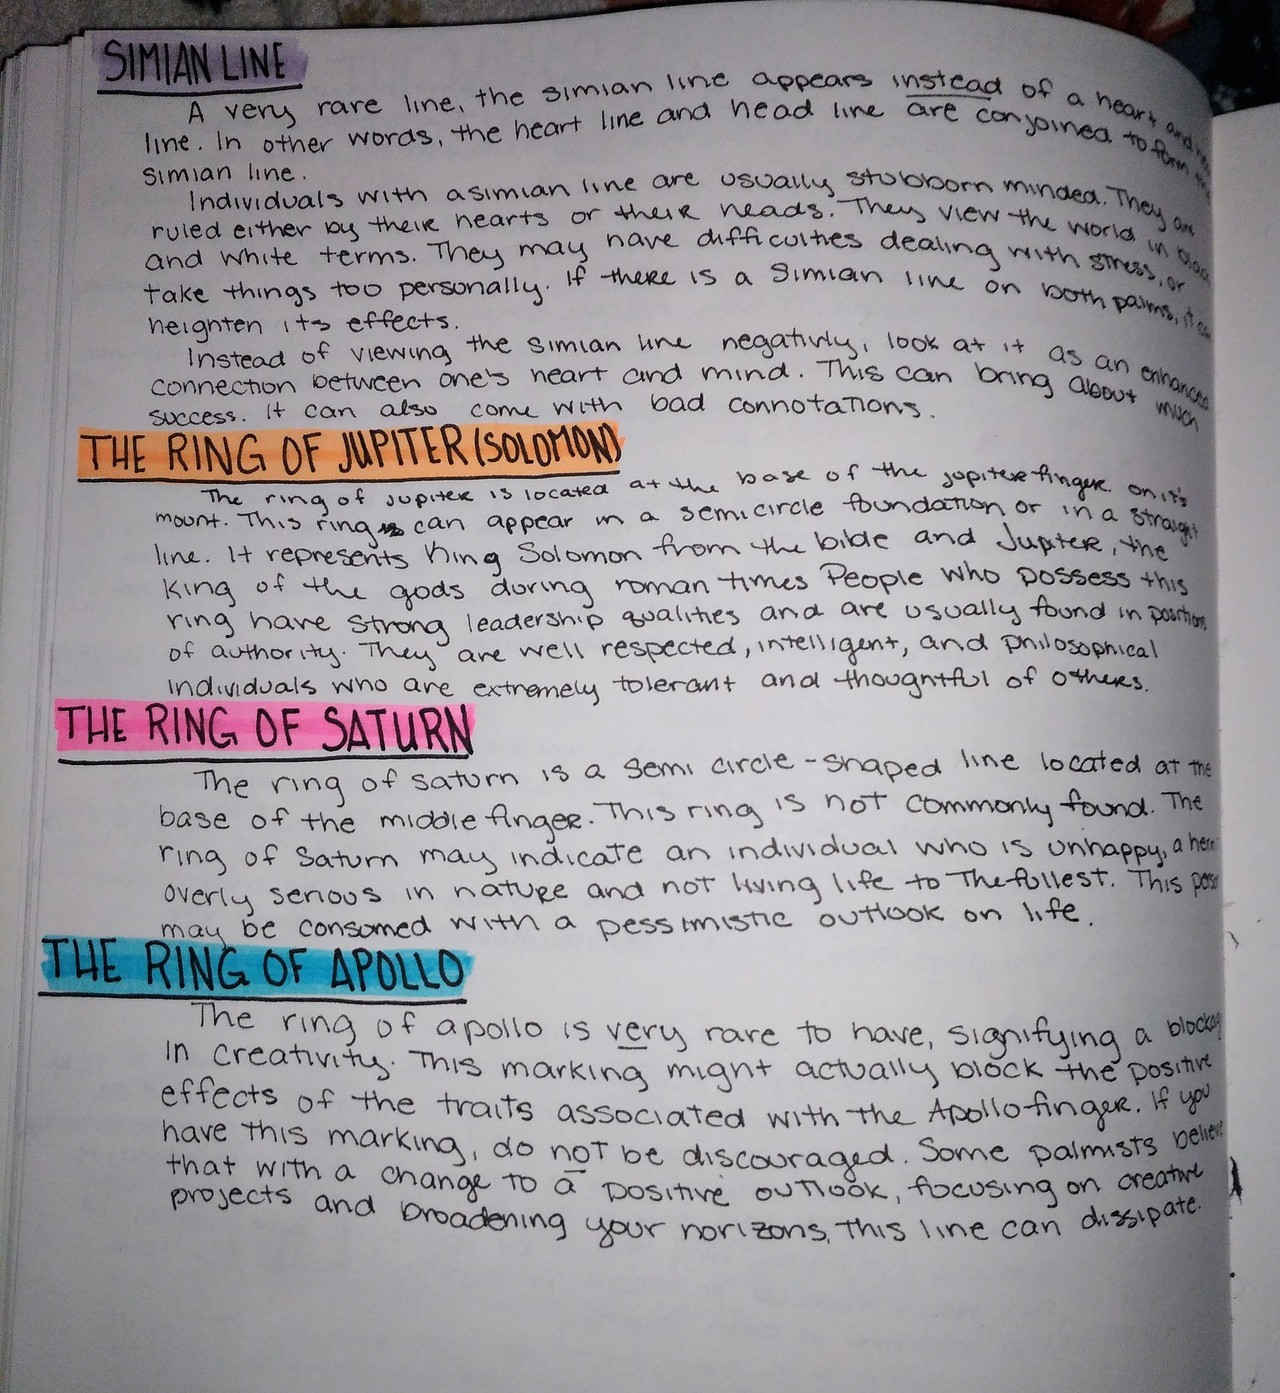 SIMIAN LINE
A very rare line, the simian line appears instead of a heart and
line. In other words, the heart line and head line are conjoined to form
simian line.
Individuals with a simian line are usually stubborn minded. They are
ruled either by their hearts or their heads. They view the world in black
and white terms. They may have difficulties dealing with stress, or
take things too personally. If there is a simian line on both palms, it can
heighten its effects.
Instead of viewing the simian line negativly, look at it as an enhanced
connection between one's heart and mind. This can bring about much
success. It can also come with bad connotations.
THE RING OF JUPITER (SOLOMON)
The ring of jupiter is located at the base of the jupiter finger on it's
mount. This ring can appear in a semicircle foundation or in a straight
line. It represents King Solomon from the bible and Jupiter, the
King of the gods during roman times People who possess this
ring have strong leadership qualities and are usually found in positions
of authority. They are well respected, intelligent, and philosophical
individuals who are extremely tolerant and thoughtful of others.
THE RING OF SATURN
The ring of saturn is a semi circle-shaped line located at the
base of the middle finger. This ring is not commonly found. The
ring of Saturn may indicate an individual who is unhappy, a
overly serious in nature and not living life to The fullest. This
may be consumed with a pessimistic outlook on life.
THE RING OF APOLLO
The ring of apollo is very rare to have, signifying a
in creativity. This marking might actually block the positive
effects of the traits associated with the Apollo finger. If you
have this marking, do not be discouraged. Some palmists believe
that with a change to a positive outlook, focusing on creative
projects and broadening your horizons, this line can dissipate.